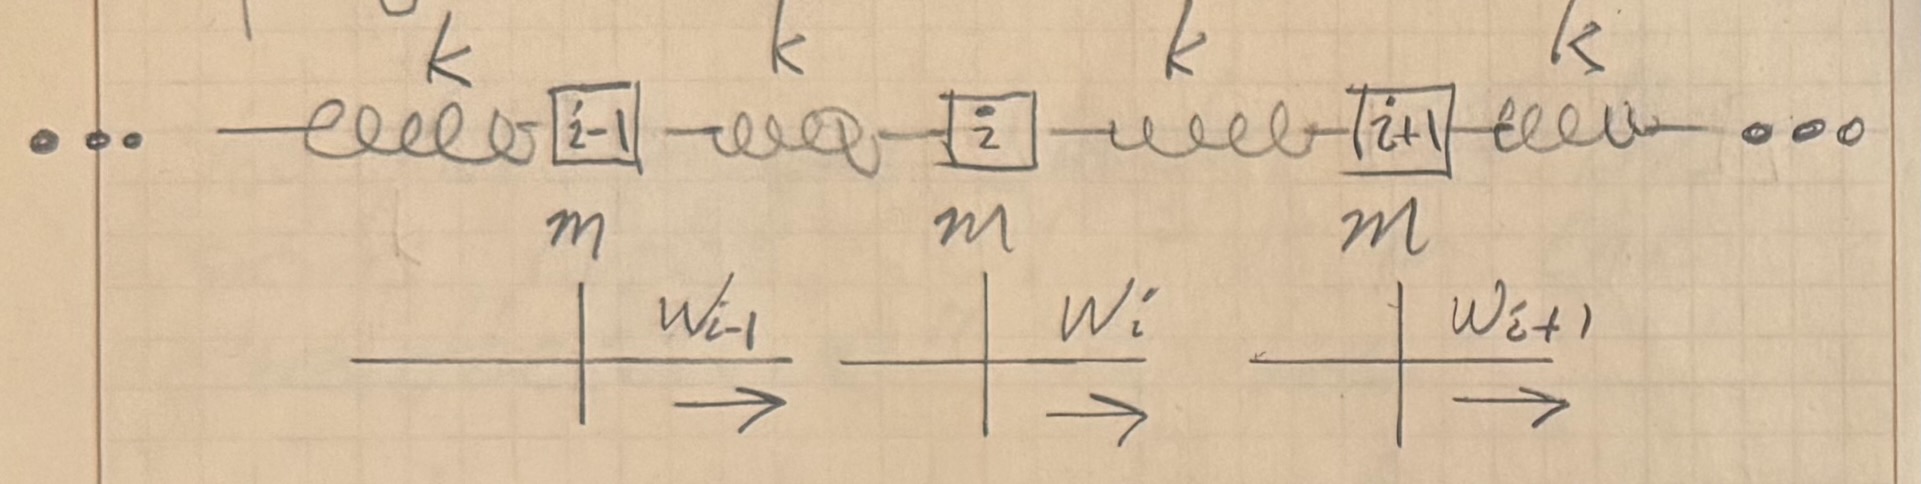 k k k k
••• i-1 i i+1 •••
m m m
w_{i-1} w_i w_{i+1}